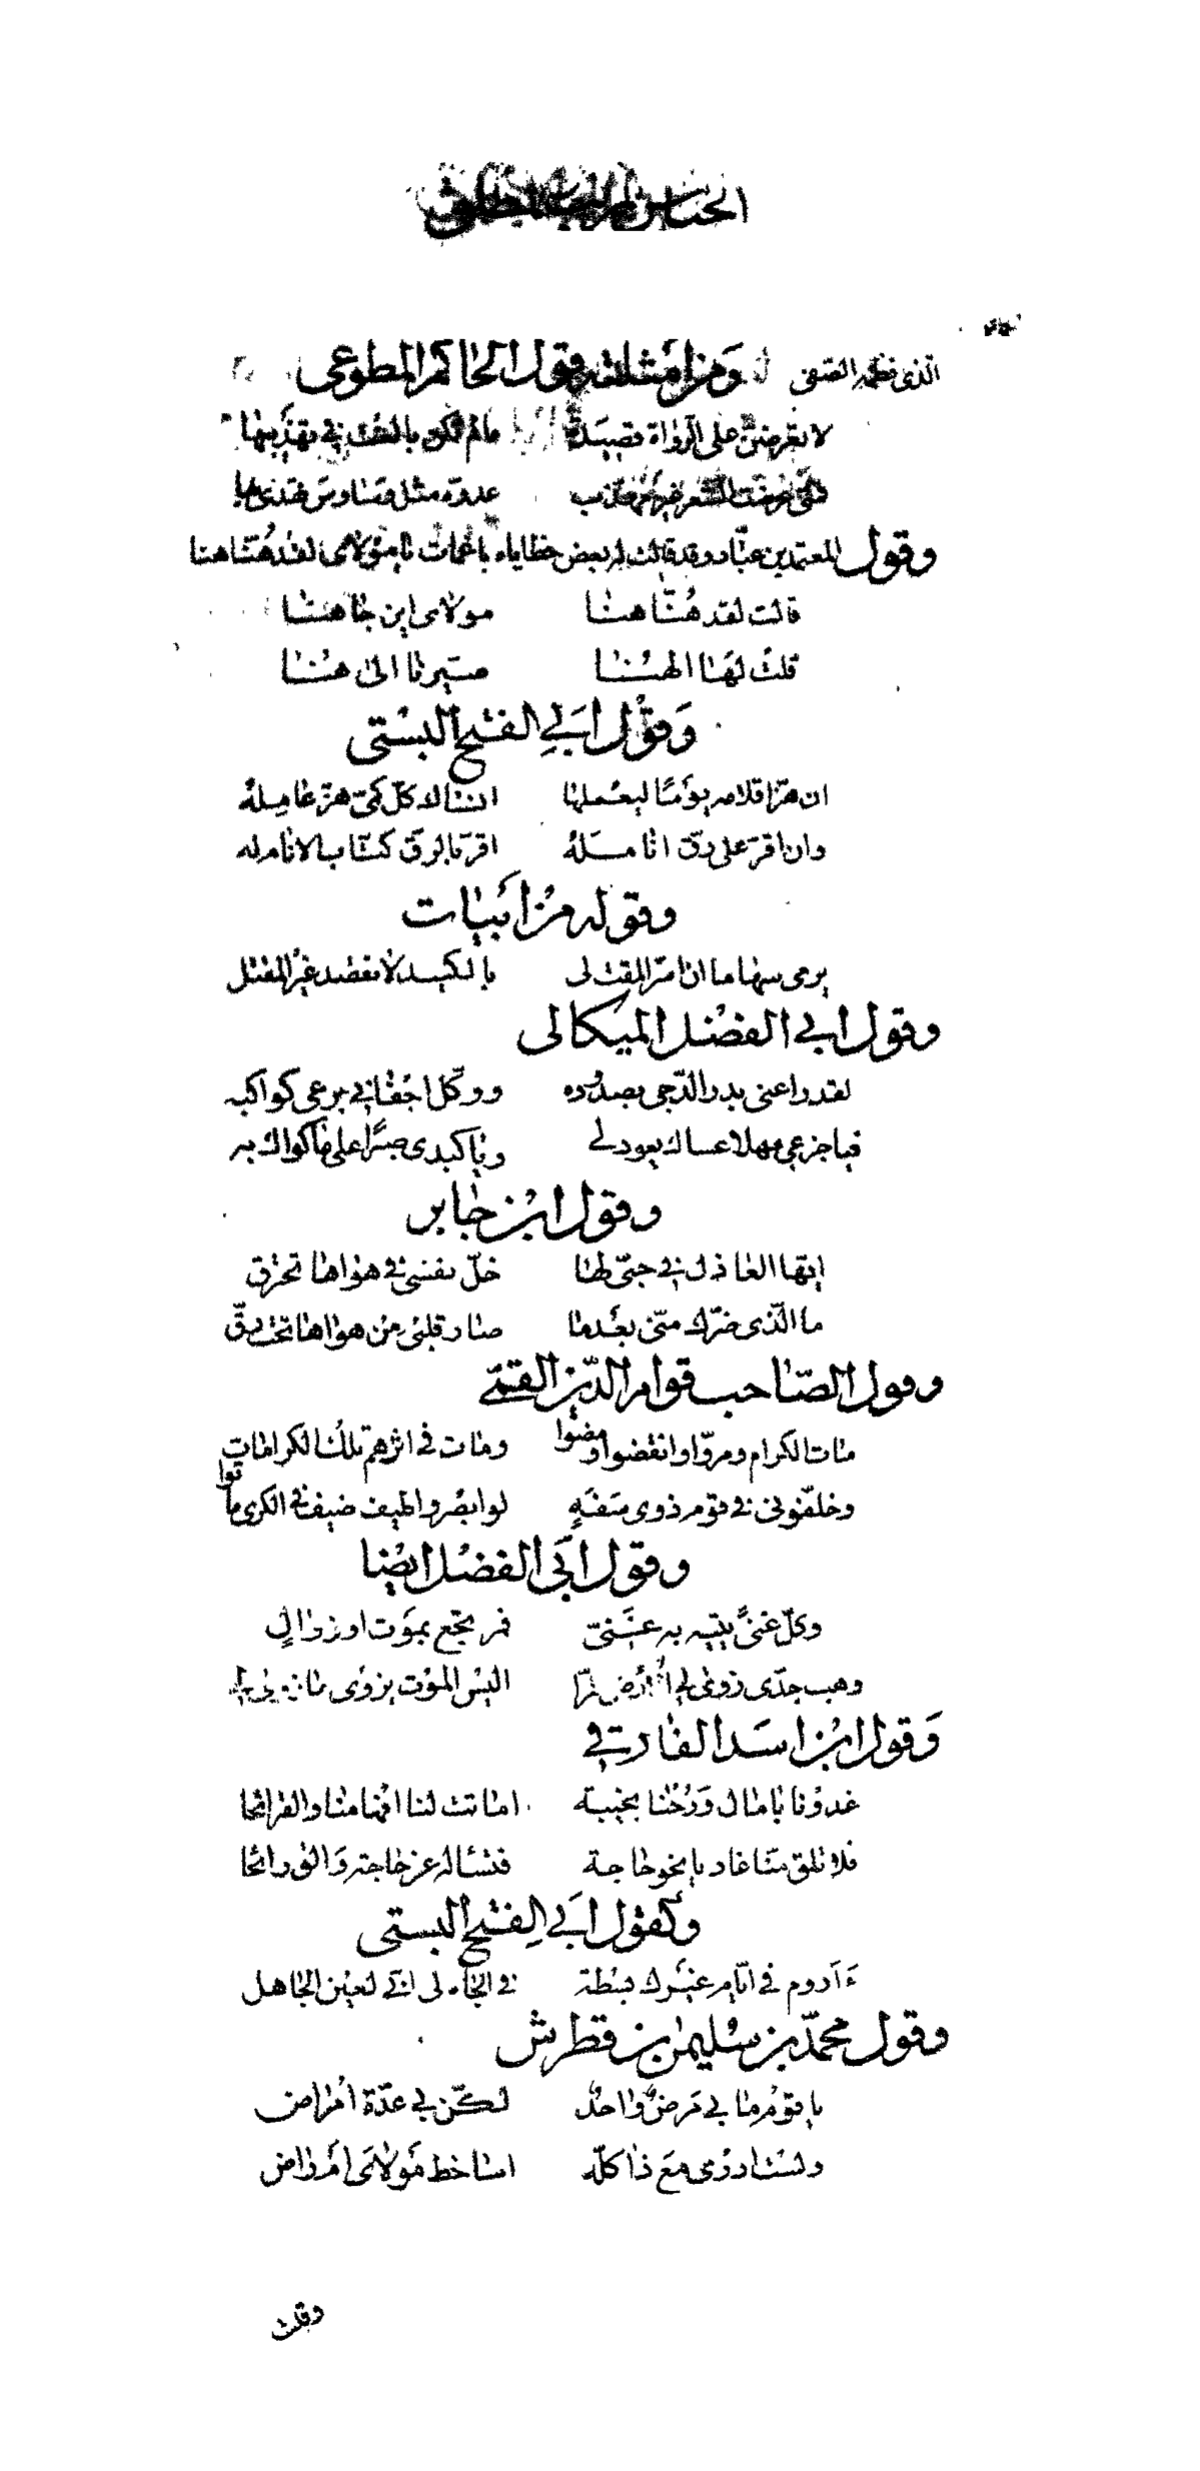 الجناس المركب
الذى نظمه الصفى ومن أمثلته قول الحاكم المطوعى
لا تعرضنّ على الرواة قصيدة ما لم تكن بالغت فى تهذيبها
فمتى عرضت الشعر غير مهذب عدوه مثل وساوس تهذى بها
وقول المعتمد بن عبّاد وقد قالت له بعض حظاياه باغمات يا مولاى لقد هُنّا هنا
قالت لقد هُنّا هنا مولاى اين جاهنا
قلت لها الهنا صيرنا الى هنا
وَقول ابي الفتح البُستى
ان هزّ اقلامه يومًا ليعملها انساك كلّ كمىّ هزّ عامله
وان اقرّ على رق انامله اقرّ بالرق كتاب الانام له
وقوله من أبيات
يرمى سهاما ان امرّ المقت لى بالكيد لا تقصد غير المقتل
وقول ابي الفضل الميكالى
لقد راعنى بدر الدّجى بصدُوده ووكّل اجفانى برعى كواكبه
فيا جزعى مهلا عساك يعود لى ويا كبدى صبرًا على ما كواك به
وقول ابن جابر
ايها العاذل فى حبّى لها خلّ نفسى فى هواها تحترق
ما الّذى ضرّك منّى بعدما صار قلبى من هواها تحت رقّ
وقول الصّاحب قوام الدّين القمّى
مات الكرام ومرّوا وانقضوا ومضوا ومات فى اثرهم تلك الكرامات
وخلّفونى فى قوم ذوى سفهٍ لو ابصروا طيف ضيف فى الكرى ماتوا
وقول ابى الفضل ايضا
وكلّ غنىً يتيه به غنىّ فمرتجع بموت او زوالٍ
وهب جدّى زوى لى الأرض طرّا اليس الموت يزوى ما زوى لى
وَقول ابن اسَد الفارقي
غدونا بامال وَرُحنا بخيبة اماتت لنا افهامنا والقرائحا
فلا تلق منّا غاديا نحو حاجة فتساله عن حاجته وَالق رائحا
وكقول ابي الفتح البستى
ءَادوم فى ايّام غيرك فى الجاه لى انّى لعين الجاهل
وقول محمّد بن سُليمٰن بن قطرش
يا قوم ما بي مَرضٌ واحدٌ لكنّ بي عدّة امراض
ولست ادرى معَ ذا كلّه اساخط مَولاىَ أم راض
وقلت